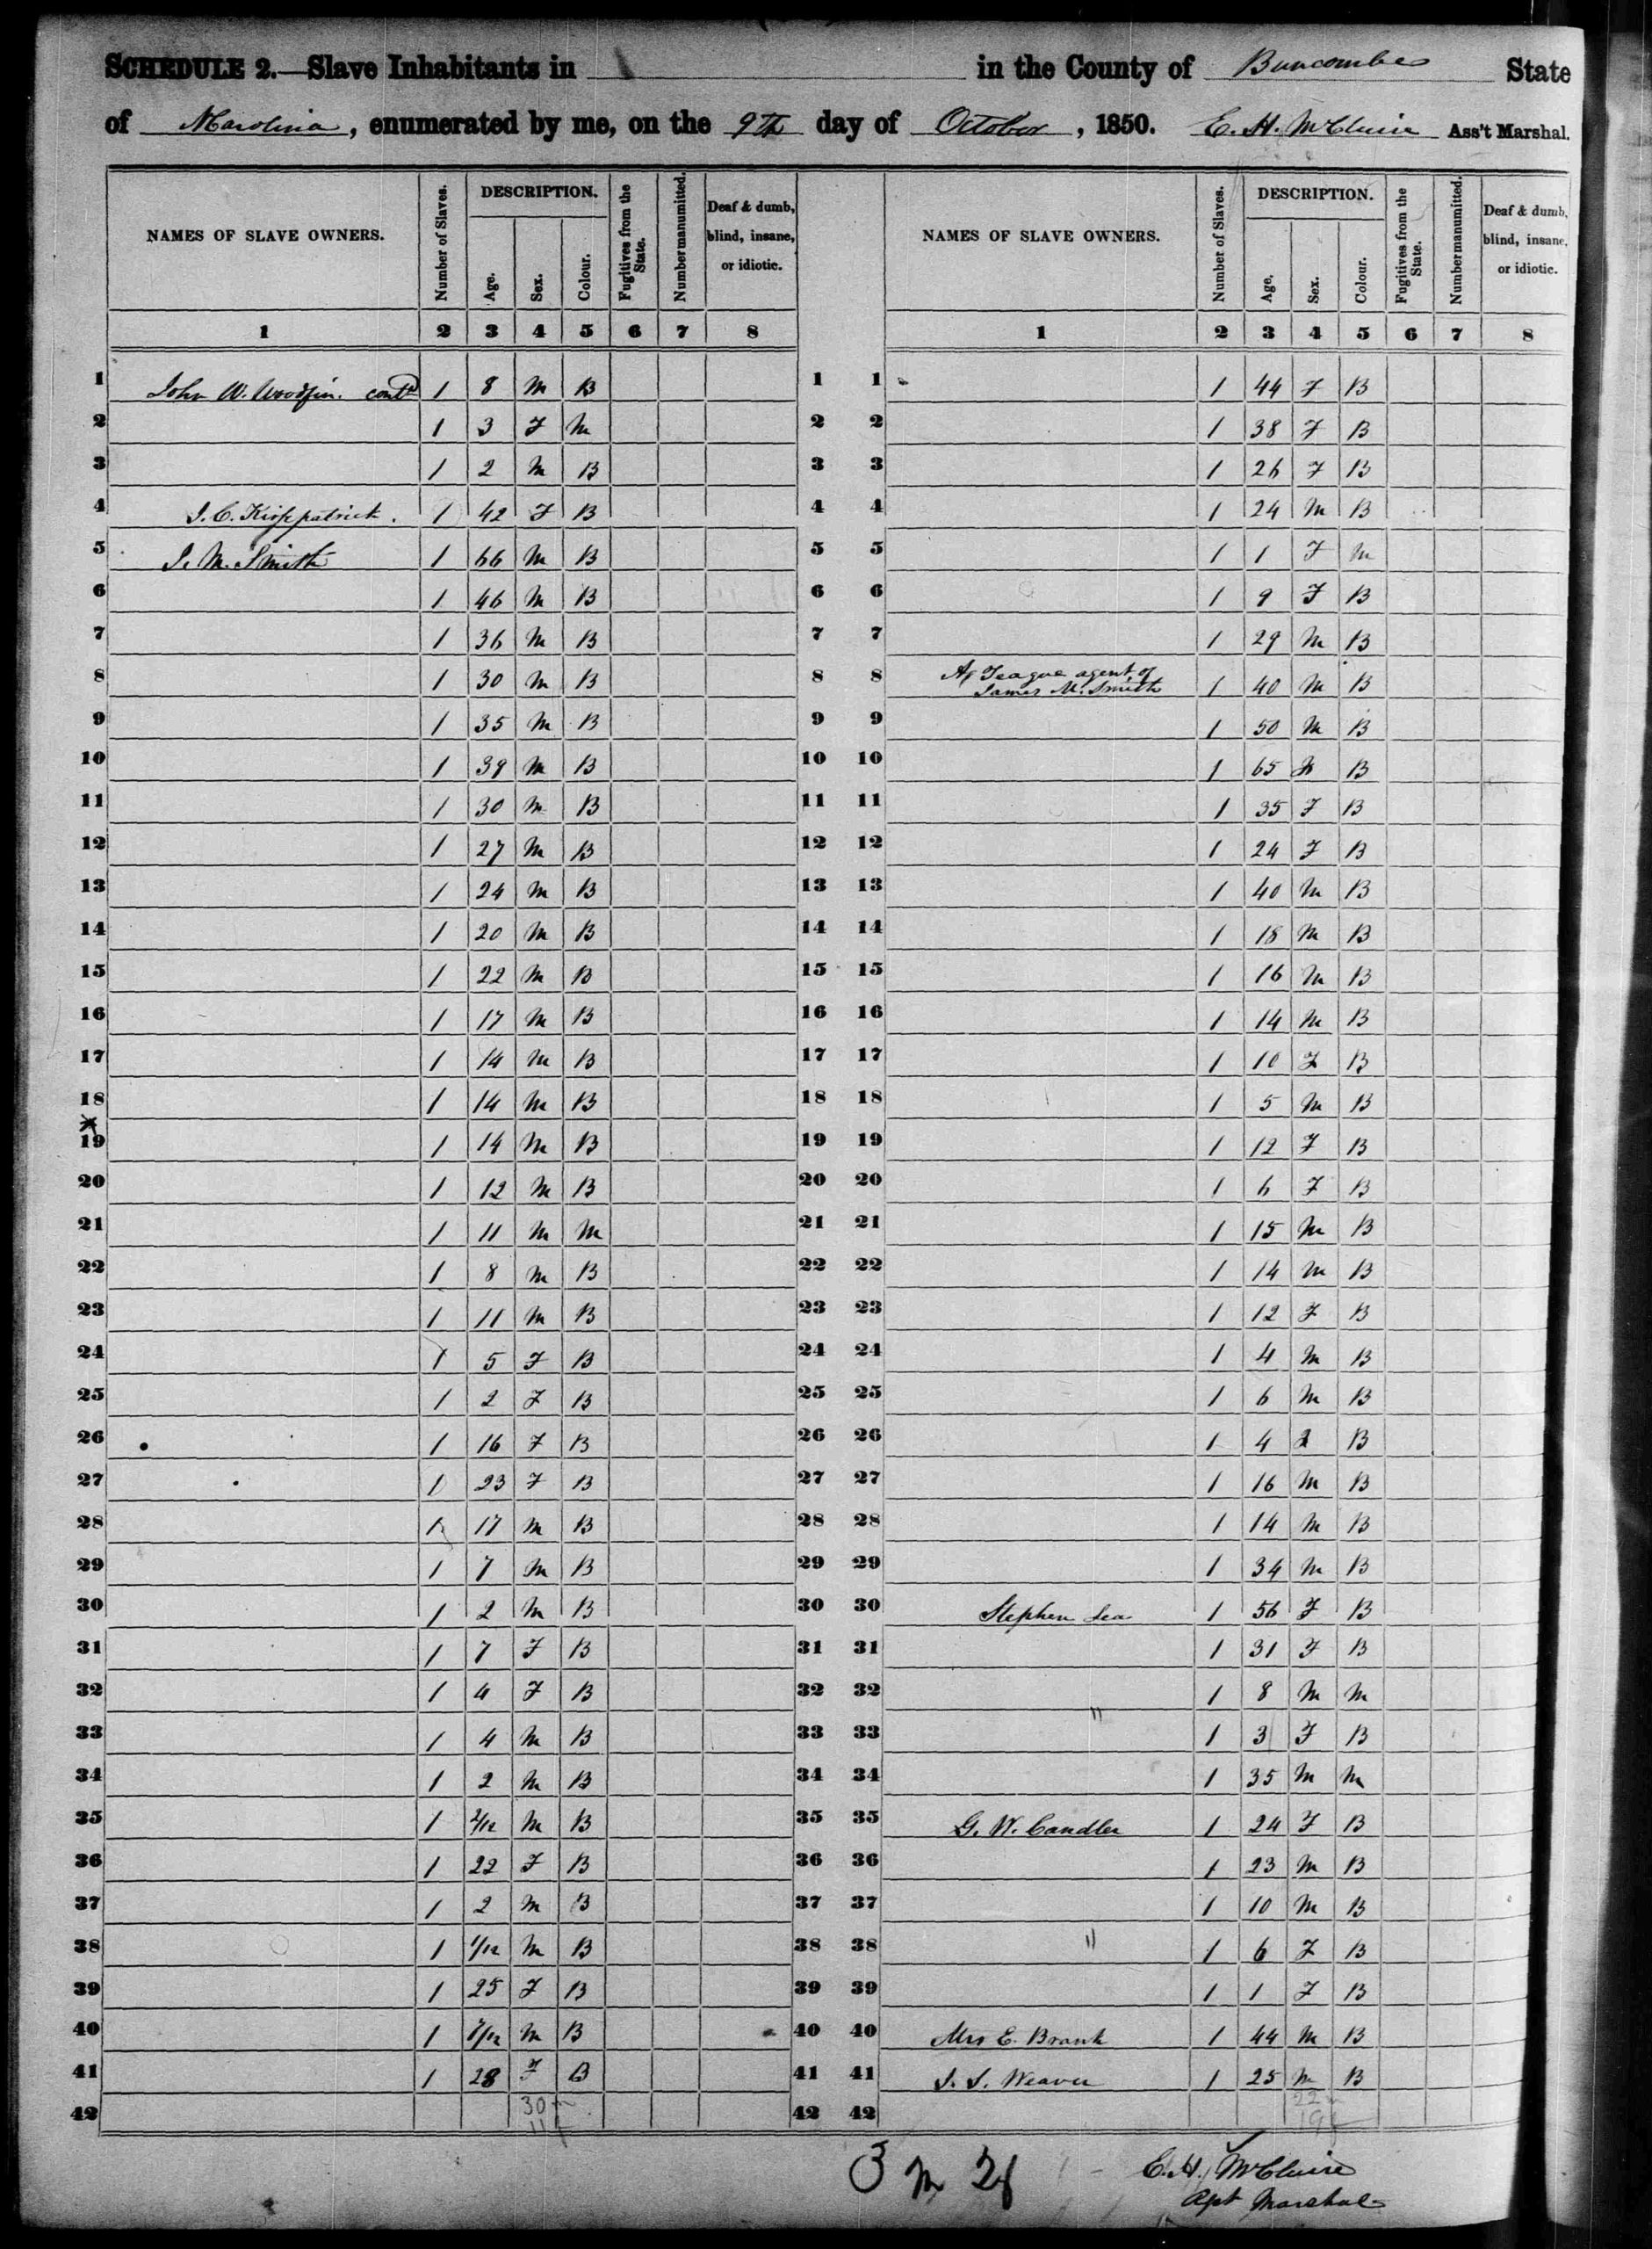 SCHEDULE 2.—Slave Inhabitants in in the County of Buncombe State
of N Carolina, enumerated by me, on the 9th day of October, 1850. E. H. McClure Ass't Marshal.
NAMES OF SLAVE OWNERS. Number of Slaves. DESCRIPTION. Age. Sex. Colour. Fugitives from the State. Number manumitted. Deaf & dumb, blind, insane, or idiotic.
NAMES OF SLAVE OWNERS. Number of Slaves. DESCRIPTION. Age. Sex. Colour. Fugitives from the State. Number manumitted. Deaf & dumb, blind, insane, or idiotic.
1 2 3 4 5 6 7 8 1 2 3 4 5 6 7 8
1 John W. Woodfin. contd 1 8 M B 1 1 1 44 F B
2 1 3 F M 2 2 1 38 F B
3 1 2 M B 3 3 1 26 F B
4 J. C. Kirkpatrick. 1 42 F B 4 4 1 24 M B
5 J. M. Smith 1 66 M B 5 5 1 1 F M
6 1 46 M B 6 6 1 9 F B
7 1 36 M B 7 7 1 29 M B
8 1 30 M B 8 8 Teague agent of James M. Smith 1 40 M B
9 1 35 M B 9 9 1 50 M B
10 1 39 M B 10 10 1 65 B
11 1 30 M B 11 11 1 35 F B
12 1 27 M B 12 12 1 24 F B
13 1 24 M B 13 13 1 40 M B
14 1 20 M B 14 14 1 18 M B
15 1 22 M B 15 15 1 16 M B
16 1 17 M B 16 16 1 14 M B
17 1 14 M B 17 17 1 10 F B
18 1 14 M B 18 18 1 5 M B
19 1 14 M B 19 19 1 12 F B
20 1 12 M B 20 20 1 6 F B
21 1 11 M M 21 21 1 15 M B
22 1 8 M B 22 22 1 14 M B
23 1 11 M B 23 23 1 12 F B
24 1 5 F B 24 24 1 4 M B
25 1 2 F B 25 25 1 6 M B
26 1 16 F B 26 26 1 4 F B
27 1 23 F B 27 27 1 16 M B
28 1 17 M B 28 28 1 14 M B
29 1 7 M B 29 29 1 34 M B
30 1 2 M B 30 30 Stephen Lea 1 56 F B
31 1 7 F B 31 31 1 31 F B
32 1 4 F B 32 32 1 8 M M
33 1 4 M B 33 33 " 1 3 F B
34 1 2 M B 34 34 1 35 M M
35 1 2/12 M B 35 35 G. W. Candler 1 24 F B
36 1 22 F B 36 36 1 23 M B
37 1 2 M B 37 37 1 10 M B
38 1 1/12 M B 38 38 " 1 6 F B
39 1 25 F B 39 39 1 1 F B
40 1 7/12 M B 40 40 Mrs E. Brank 1 44 M B
41 1 28 F B 41 41 J. S. Weaver 1 25 M B
42 30 m 11 f 42 42 22 m 19 f
3 m 2 f
E. H. McClure
Asst Marshal